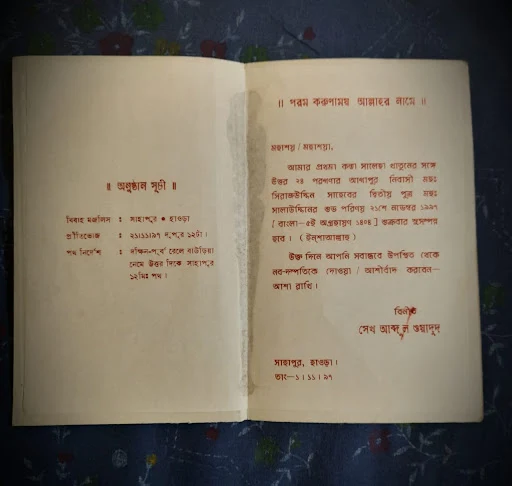 ॥ অনুষ্ঠান সূচী ॥
বিবাহ মজলিস : সাহাপুর • হাওড়া
প্রীতিভোজ : ২১।১১।৯৭ দুপুর ১২টা।
পথ নির্দেশ : দক্ষিণ-পূর্ব রেলে বাউড়িয়া
নেমে উত্তর দিকে সাহাপুর
১২মিঃ পথ।
॥ পরম করুণাময় আল্লাহর নামে ॥
মহাশয় / মহাশয়া,
আমার প্রথমা কন্যা সালেহা খাতুনের সঙ্গে
উত্তর ২৪ পরগণার আটাপুর নিবাসী মহঃ
সিরাজউদ্দিন সাহেবের দ্বিতীয় পুত্র মহঃ
সালাউদ্দিনের শুভ পরিণয় ২১শে নভেম্বর ১৯৯৭
[ বাংলা—৫ই অগ্রহায়ণ ১৪০৪ ] শুক্রবার সুসম্পন্ন
হবে। ( ইনশাআল্লাহ )
উক্ত দিনে আপনি সবান্ধবে উপস্থিত থেকে
নব-দম্পতিকে দোওয়া / আশীর্বাদ করবেন—
আশা রাখি।
বিনীত
সেখ আব্দুল ওয়াদুদ
সাহাপুর, হাওড়া।
তাং—১।১১।৯৭